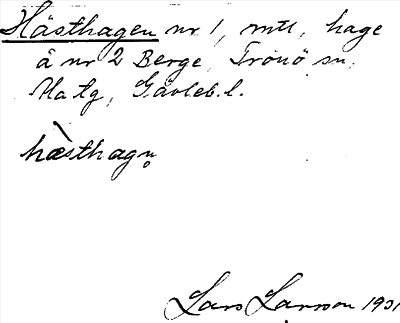 Hästhagen nr 1, mtl, hage
å nr 2 Berge, Trönö sn,
Ha tg, Gävleb. l.
hæ̀sthagn̥
Lars Larsson 1931